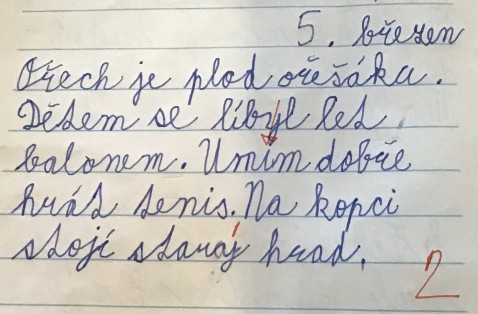 5. březen
Ořech je plod ořešáku.
Dětem se líbyl let
balonem. Umím dobře
hrát tenis. Na kopci
stojí staráj hrad.
2